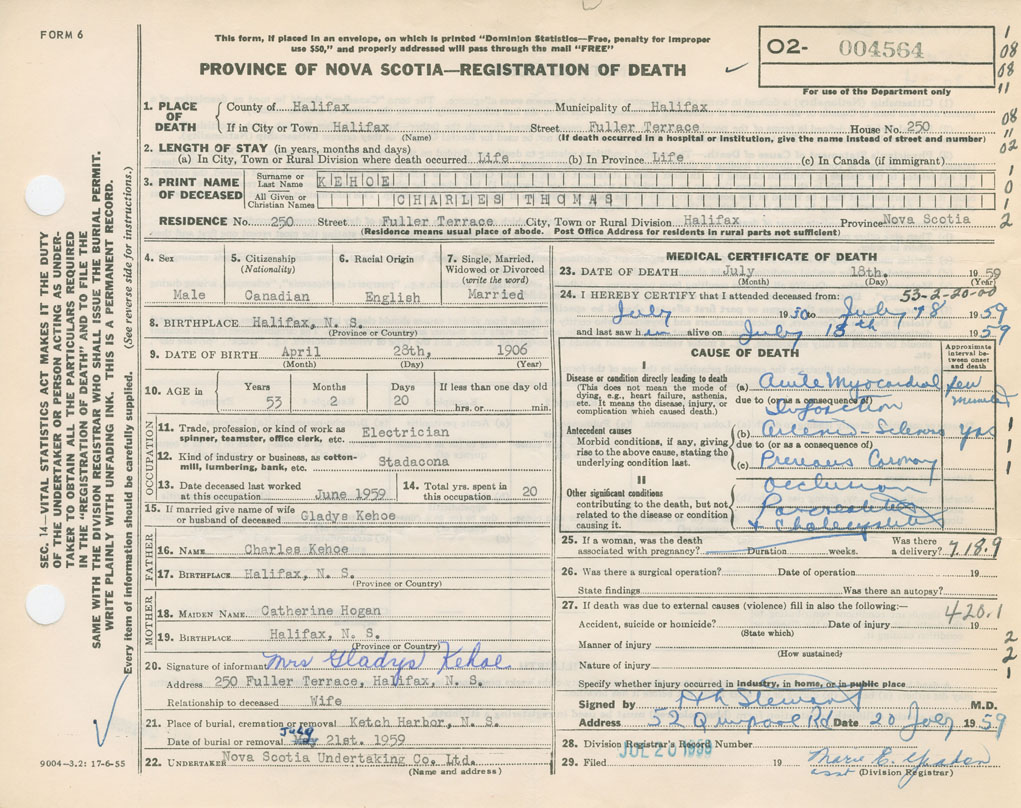 FORM 6
This form, if placed in an envelope, on which is printed "Dominion Statistics—Free, penalty for improper
use $50," and properly addressed will pass through the mail "FREE"
PROVINCE OF NOVA SCOTIA—REGISTRATION OF DEATH
02- 004564
For use of the Department only
1
08
08
11
08
11
02
1
0
1
2
SEC. 14—VITAL STATISTICS ACT MAKES IT THE DUTY
OF THE UNDERTAKER OR PERSON ACTING AS UNDER-
TAKER TO OBTAIN ALL THE PARTICULARS REQUIRED
IN THE "REGISTRATION OF DEATH" AND TO FILE THE
SAME WITH THE DIVISION REGISTRAR WHO SHALL ISSUE THE BURIAL PERMIT.
WRITE PLAINLY WITH UNFADING INK. THIS IS A PERMANENT RECORD.
Every item of information should be carefully supplied. (See reverse side for instructions.)
1. PLACE OF DEATH
County of Halifax Municipality of Halifax
If in City or Town Halifax Street Fuller Terrace House No. 250
(Name) (If death occurred in a hospital or institution, give the name instead of street and number)
2. LENGTH OF STAY (in years, months and days)
(a) In City, Town or Rural Division where death occurred Life (b) In Province Life (c) In Canada (if immigrant)
3. PRINT NAME OF DECEASED
Surname or Last Name KEHOE
All Given or Christian Names CHARLES THOMAS
RESIDENCE No. 250 Street Fuller Terrace City, Town or Rural Division Halifax Province Nova Scotia
(Residence means usual place of abode. Post Office Address for residents in rural parts not sufficient)
4. Sex
Male
5. Citizenship
(Nationality)
Canadian
6. Racial Origin
English
7. Single, Married,
Widowed or Divorced
(write the word)
Married
8. BIRTHPLACE Halifax, N. S.
(Province or Country)
9. DATE OF BIRTH April 28th, 1906
(Month) (Day) (Year)
10. AGE in
Years Months Days If less than one day old
53 2 20 hrs. or min.
OCCUPATION
11. Trade, profession, or kind of work as
spinner, teamster, office clerk, etc. Electrician
12. Kind of industry or business, as cotton-
mill, lumbering, bank, etc. Stadacona
13. Date deceased last worked
at this occupation June 1959
14. Total yrs. spent in
this occupation 20
15. If married give name of wife
or husband of deceased Gladys Kehoe
FATHER
16. NAME Charles Kehoe
17. BIRTHPLACE Halifax, N. S.
(Province or Country)
MOTHER
18. MAIDEN NAME Catherine Hogan
19. BIRTHPLACE Halifax, N. S.
(Province or Country)
20. Signature of informant Mrs Gladys Kehoe
Address 250 Fuller Terrace, Halifax, N. S.
Relationship to deceased Wife
21. Place of burial, cremation or removal Ketch Harbor, N. S.
Date of burial or removal July 21st. 1959
22. UNDERTAKER Nova Scotia Undertaking Co. Ltd.
(Name and address)
9004-3.2: 17-6-55
MEDICAL CERTIFICATE OF DEATH
23. DATE OF DEATH July 18th. 1959
(Month) (Day) (Year)
24. I HEREBY CERTIFY that I attended deceased from: 53-2-20-00
July 1950 to July 18 1959
and last saw him alive on July 18th 1959
CAUSE OF DEATH
Approximate
interval be-
tween onset
and death
I
Disease or condition directly leading to death
(This does not mean the mode of
dying, e.g., heart failure, asthenia,
etc. It means the disease, injury, or
complication which caused death.)
(a) Acute Myocardial few
due to (or as a consequence of) minutes
Infarction
Antecedent causes
Morbid conditions, if any, giving
rise to the above cause, stating the
underlying condition last.
(b) Arterio-Sclerosis yrs
due to (or as a consequence of)
(c) Previous Coronary
Occlusion
II
Other significant conditions
contributing to the death, but not
related to the disease or condition
causing it.
Pancreatitis
+ Cholecystitis
25. If a woman, was the death
associated with pregnancy? Duration weeks. Was there
a delivery? 7.18.9
26. Was there a surgical operation? Date of operation 19
State findings Was there an autopsy?
27. If death was due to external causes (violence) fill in also the following:— 420.1
Accident, suicide or homicide? Date of injury 19
(State which)
Manner of injury
(How sustained)
Nature of injury
Specify whether injury occurred in industry, in home, or in public place
Signed by Stewart M.D.
Address 52 Quinpool Rd Date 20 July 1959
28. Division Registrar's Record Number
JUL 20 1959
29. Filed 19 Marie E.
asst (Division Registrar)